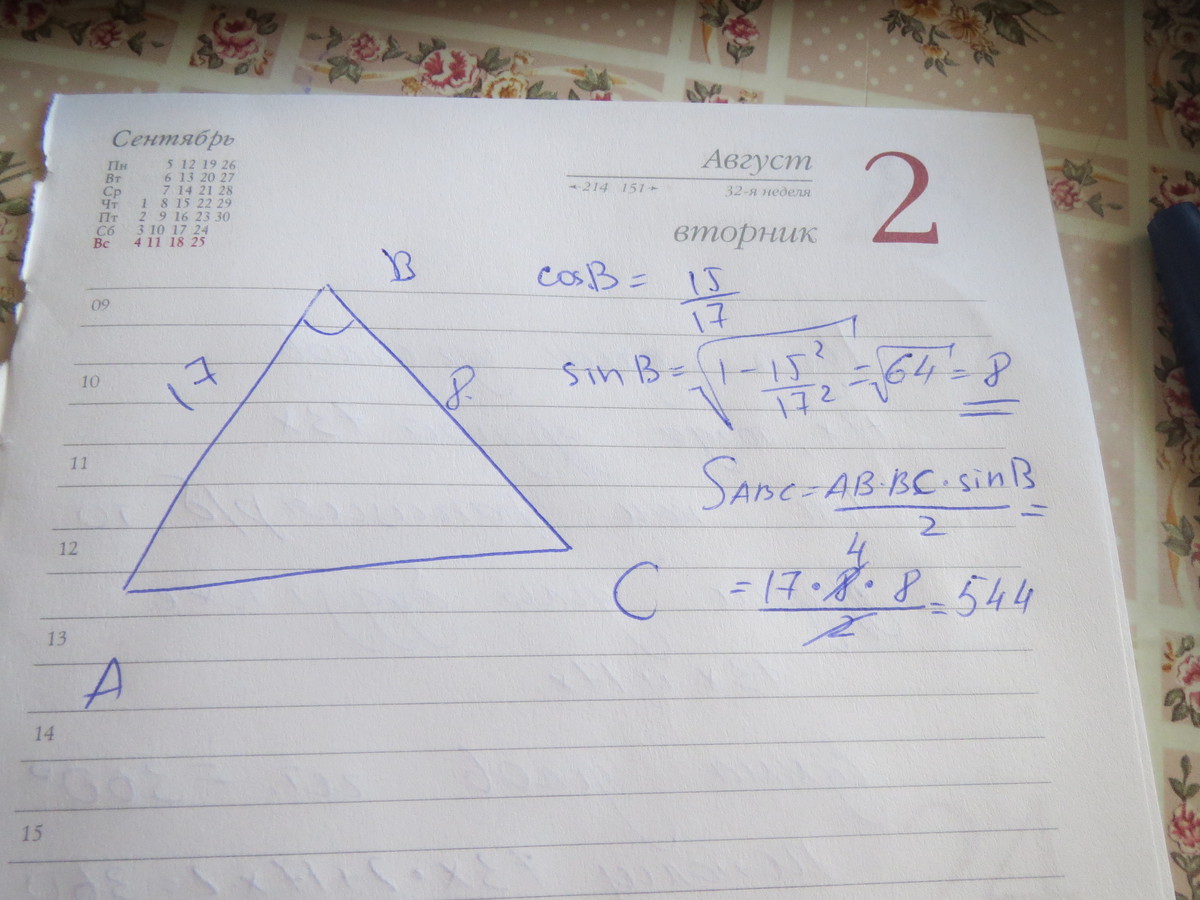 Сентябрь
Пн 5 12 19 26
Вт 6 13 20 27
Ср 7 14 21 28
Чт 1 8 15 22 29
Пт 2 9 16 23 30
Сб 3 10 17 24
Вс 4 11 18 25
Август
214 151
32-я неделя
вторник
2
09
10
11
12
13
14
15
B
17
8
A
C
cosB = 15/17
sinB = √(1 - 15²/17²) = √64 = 8
S ABC = AB·BC·sinB/2 =
4
= 17·8·8/2 = 544